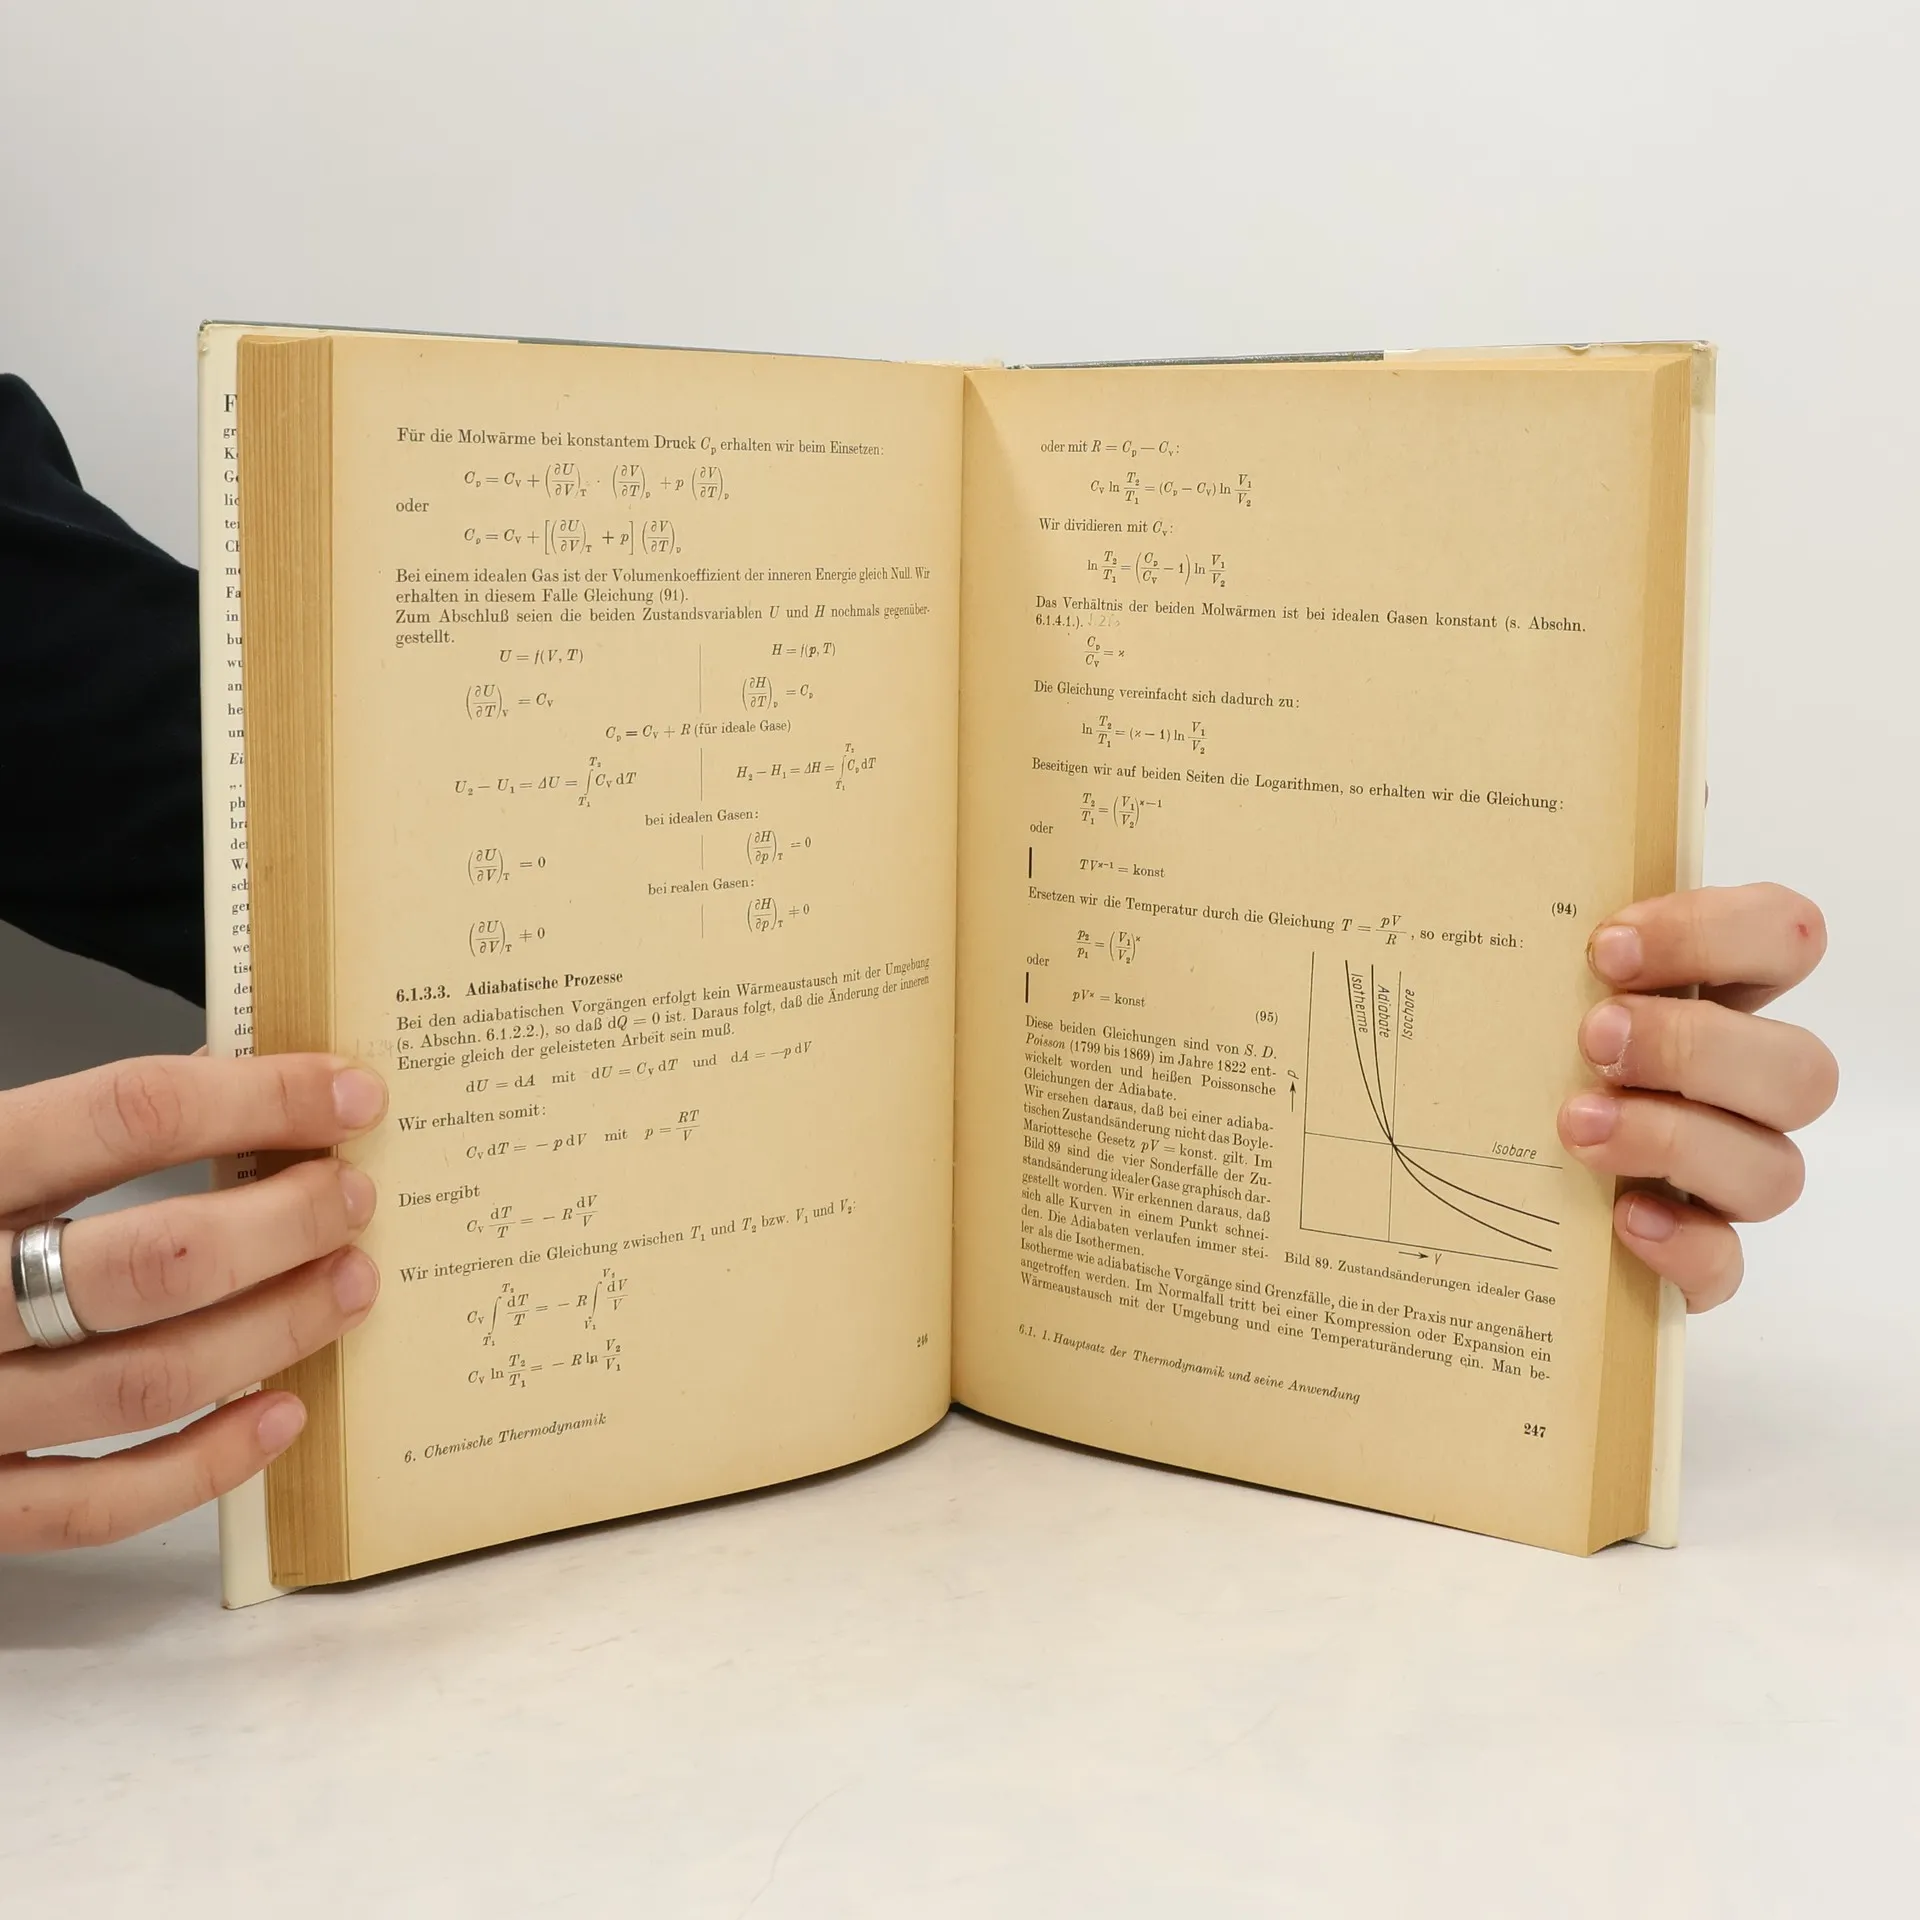 Für die Molwärme bei konstantem Druck C_p erhalten wir beim Einsetzen:
C_p = C_V + (∂U/∂V)_T · (∂V/∂T)_p + p (∂V/∂T)_p
oder
C_p = C_V + [(∂U/∂V)_T + p] (∂V/∂T)_p
Bei einem idealen Gas ist der Volumenkoeffizient der inneren Energie gleich Null. Wir
erhalten in diesem Falle Gleichung (91).
Zum Abschluß seien die beiden Zustandsvariablen U und H nochmals gegenüber-
gestellt.
U = f(V, T) H = f(p, T)
(∂U/∂T)_V = C_V (∂H/∂T)_p = C_p
C_p = C_V + R (für ideale Gase)
U₂ − U₁ = ΔU = ∫_{T₁}^{T₂} C_V dT H₂ − H₁ = ΔH = ∫_{T₁}^{T₂} C_p dT
bei idealen Gasen:
(∂U/∂V)_T = 0 (∂H/∂p)_T = 0
bei realen Gasen:
(∂U/∂V)_T ≠ 0 (∂H/∂p)_T ≠ 0
6.1.3.3. Adiabatische Prozesse
Bei den adiabatischen Vorgängen erfolgt kein Wärmeaustausch mit der Umgebung
(s. Abschn. 6.1.2.2.), so daß dQ = 0 ist. Daraus folgt, daß die Änderung der inneren
Energie gleich der geleisteten Arbeit sein muß.
dU = dA mit dU = C_V dT und dA = −p dV
Wir erhalten somit:
C_V dT = − p dV mit p = RT/V
Dies ergibt
C_V dT/T = − R dV/V
Wir integrieren die Gleichung zwischen T₁ und T₂ bzw. V₁ und V₂:
C_V ∫_{T₁}^{T₂} dT/T = − R ∫_{V₁}^{V₂} dV/V
C_V ln T₂/T₁ = − R ln V₂/V₁
246
6. Chemische Thermodynamik
oder mit R = C_p − C_V:
C_V ln T₂/T₁ = (C_p − C_V) ln V₁/V₂
Wir dividieren mit C_V:
ln T₂/T₁ = (C_p/C_V − 1) ln V₁/V₂
Das Verhältnis der beiden Molwärmen ist bei idealen Gasen konstant (s. Abschn.
6.1.4.1.).
C_p/C_V = ϰ
Die Gleichung vereinfacht sich dadurch zu:
ln T₂/T₁ = (ϰ − 1) ln V₁/V₂
Beseitigen wir auf beiden Seiten die Logarithmen, so erhalten wir die Gleichung:
T₂/T₁ = (V₁/V₂)^{ϰ−1}
oder
TV^{ϰ−1} = konst
(94)
Ersetzen wir die Temperatur durch die Gleichung T = pV/R, so ergibt sich:
p₂/p₁ = (V₁/V₂)^ϰ
oder
pV^ϰ = konst
(95)
Diese beiden Gleichungen sind von S. D.
Poisson (1799 bis 1869) im Jahre 1822 ent-
wickelt worden und heißen Poissonsche
Gleichungen der Adiabate.
Wir ersehen daraus, daß bei einer adiaba-
tischen Zustandsänderung nicht das Boyle-
Mariottesche Gesetz pV = konst. gilt. Im
Bild 89 sind die vier Sonderfälle der Zu-
standsänderung idealer Gase graphisch dar-
gestellt worden. Wir erkennen daraus, daß
sich alle Kurven in einem Punkt schnei-
den. Die Adiabaten verlaufen immer stei-
ler als die Isothermen.
Isotherme
Adiabate
Isochore
Isobare
p
V
Bild 89. Zustandsänderungen idealer Gase
Isotherme wie adiabatische Vorgänge sind Grenzfälle, die in der Praxis nur angenähert
angetroffen werden. Im Normalfall tritt bei einer Kompression oder Expansion ein
Wärmeaustausch mit der Umgebung und eine Temperaturänderung ein. Man be-
6.1. 1. Hauptsatz der Thermodynamik und seine Anwendung
247